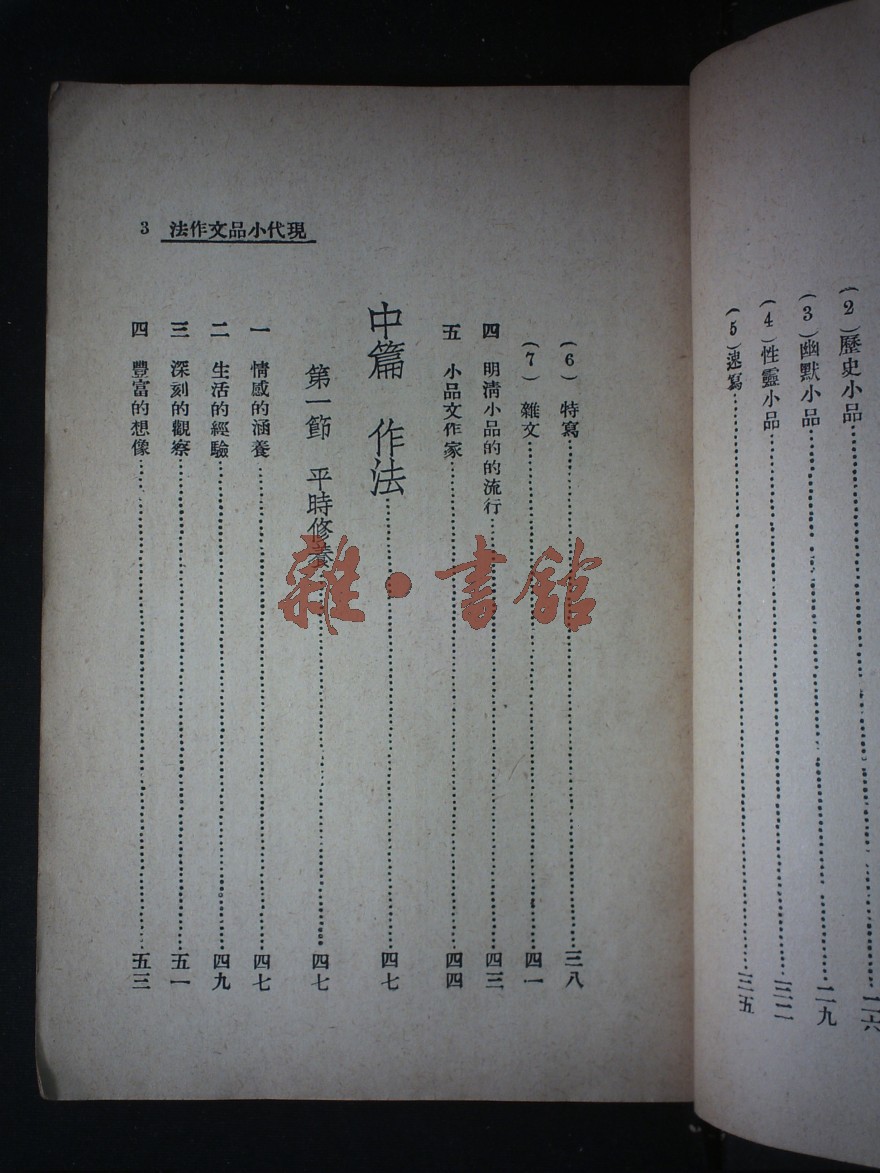 (2)歷史小品……二六
(3)幽默小品……二九
(4)性靈小品……三二
(5)速寫……三五
現代小品文作法 3
(6)特寫……三八
(7)雜文……四一
四 明清小品的的流行……四三
五 小品文作家……四四
中篇 作法……四七
第一節 平時修養……四七
一 情感的涵養……四七
二 生活的經驗……四九
三 深刻的觀察……五一
四 豐富的想像……五三
雜·書館